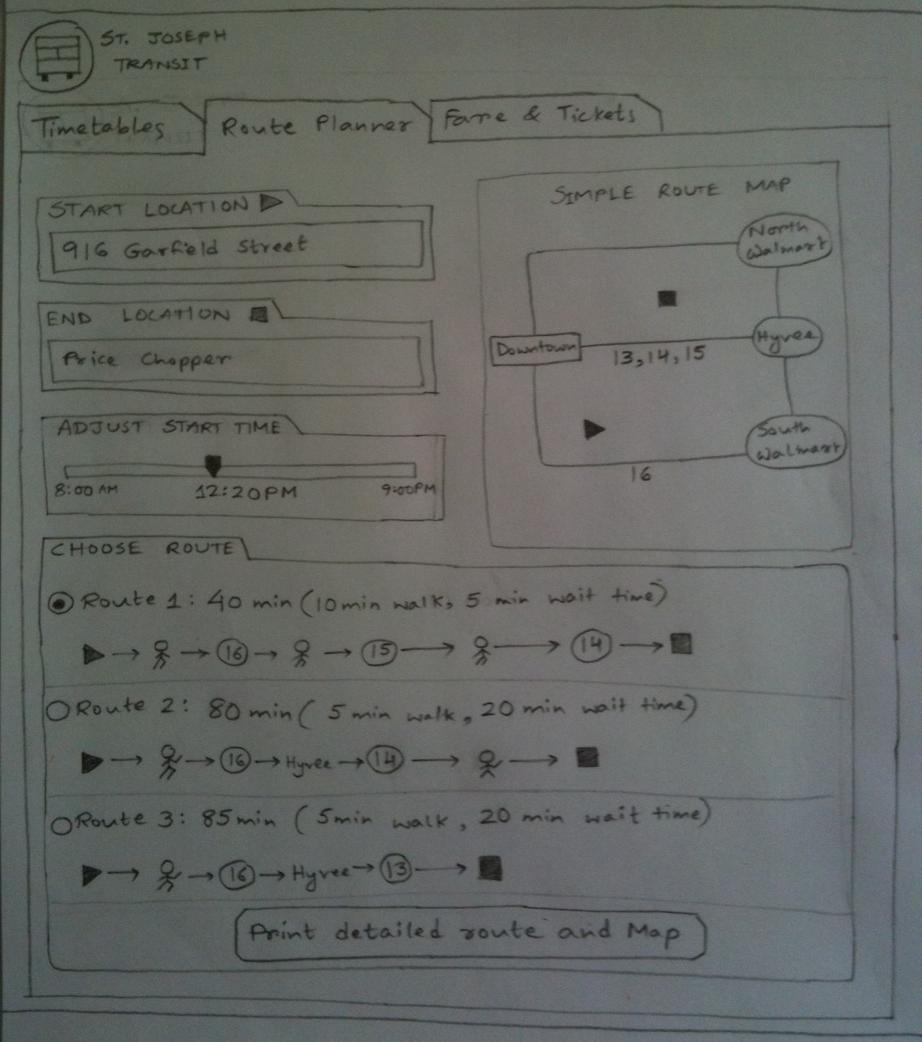 ST. JOSEPH
TRANSIT
Timetables
Route Planner
Fare & Tickets
START LOCATION
916 Garfield Street
END LOCATION
Price Chopper
ADJUST START TIME
8:00 AM
12:20PM
9:00PM
SIMPLE ROUTE MAP
North
Walmart
Downtown
13,14,15
Hyvee
South
Walmart
16
CHOOSE ROUTE
Route 1: 40 min (10min walk, 5 min wait time)
16 15 14
Route 2: 80 min ( 5 min walk, 20 min wait time)
16 Hyvee 14
Route 3: 85min ( 5min walk, 20 min wait time)
16 Hyvee 13
Print detailed route and Map